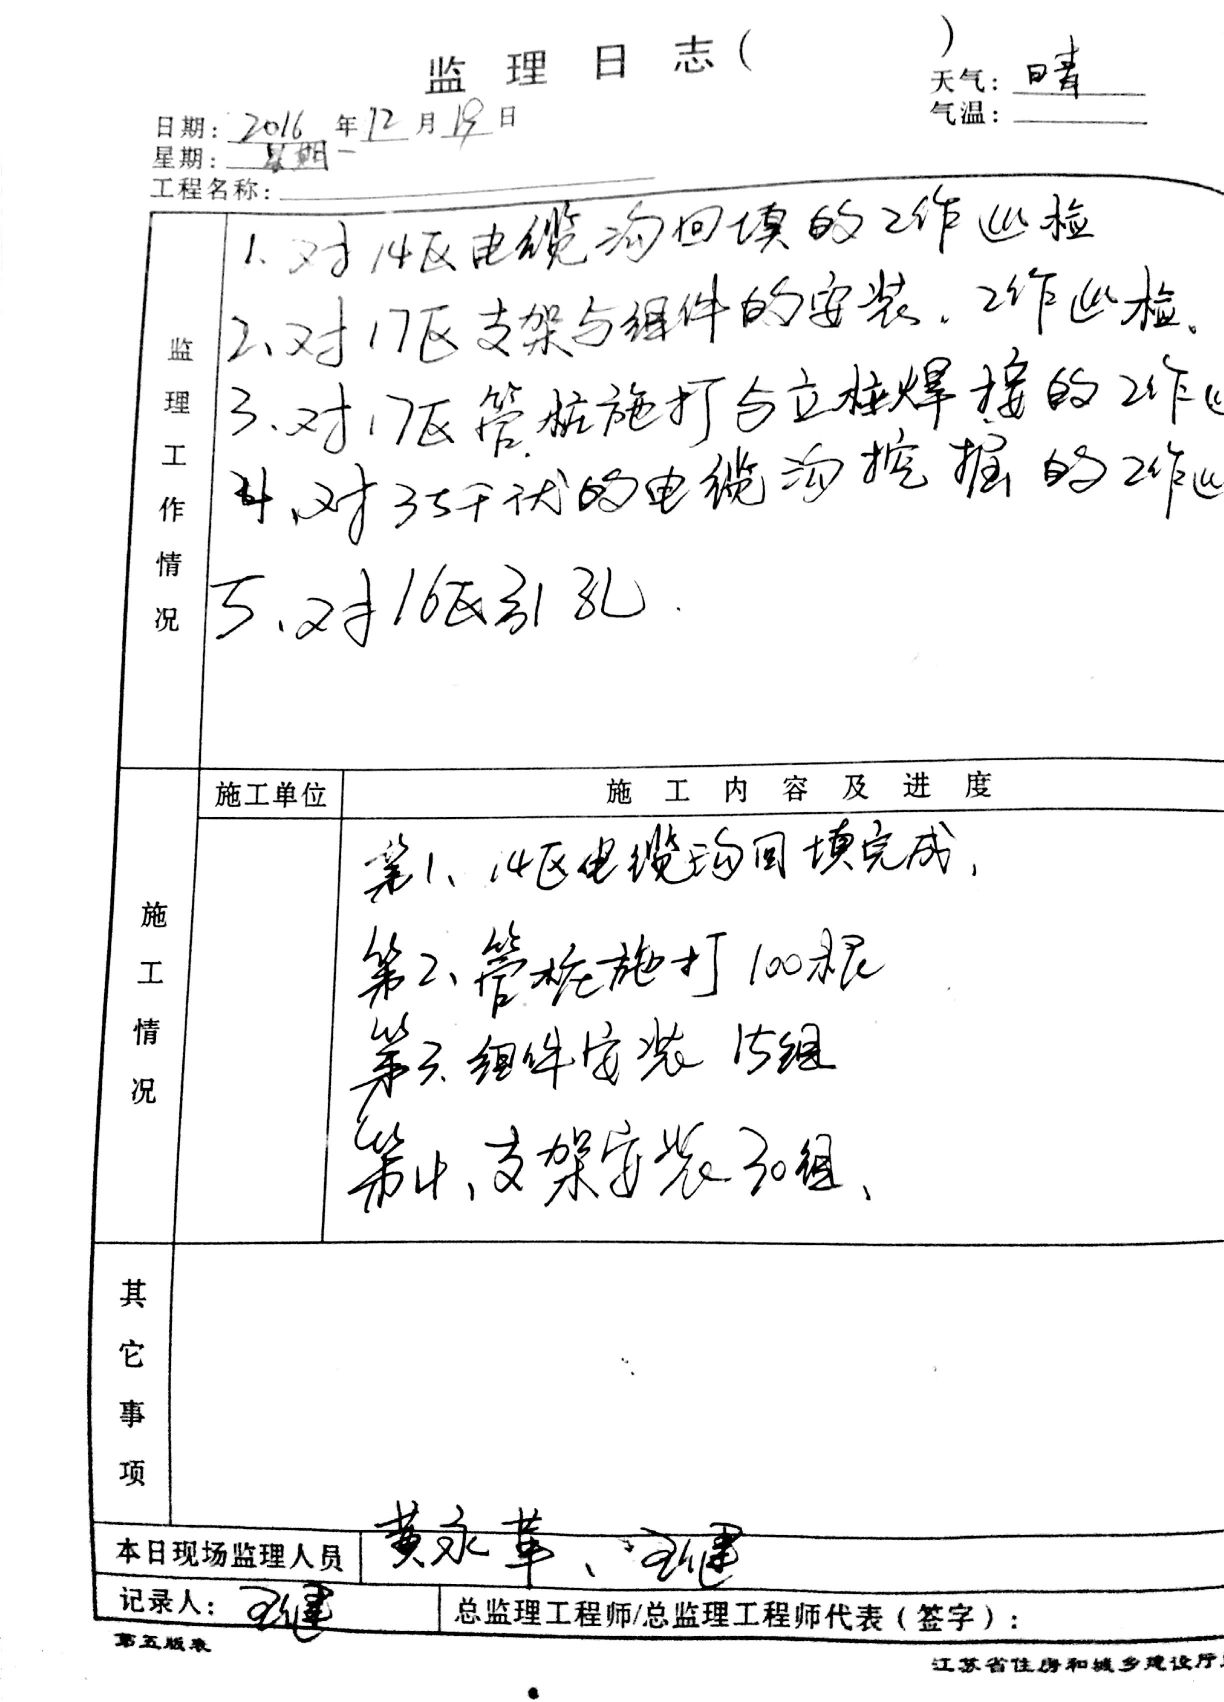 监理日志(      )
天气：晴
气温：
日期：2016年12月19日
星期：星期一
工程名称：
监理工作情况
1、对14区电缆沟回填的工作巡检
2、对17区支架与组件的安装、工作巡检、
3、对17区管桩施打与立柱焊接的工作巡
4、对35千伏的电缆沟挖掘的工作巡
5、对16区引孔.
施工情况
施工单位
施工内容及进度
第1、14区电缆沟回填完成，
第2、管桩施打100根
第3、组件安装15组
第4、支架安装30组、
其它事项
本日现场监理人员 黄永革、王健
记录人：王健
总监理工程师/总监理工程师代表(签字)：
第五版表
江苏省住房和城乡建设厅